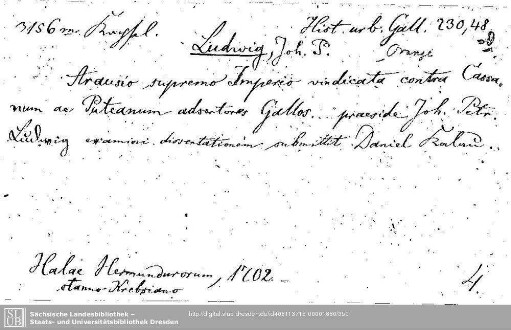 3156 m. Kapsel.
Hist. urb. Gall. 230,48
Orange
Ludwig, Joh. P.
Arausio supremo Imperio vindicata contra Cassa-
num ac Puteanum adsertores Gallos.. praeside Joh. Petr.
Ludwig examini dissertationem submittit Daniel Kalau..
Halae Hermundurorum, 1702.
stanno Krebsiano
4.
Sächsische Landesbibliothek –
Staats- und Universitätsbibliothek Dresden